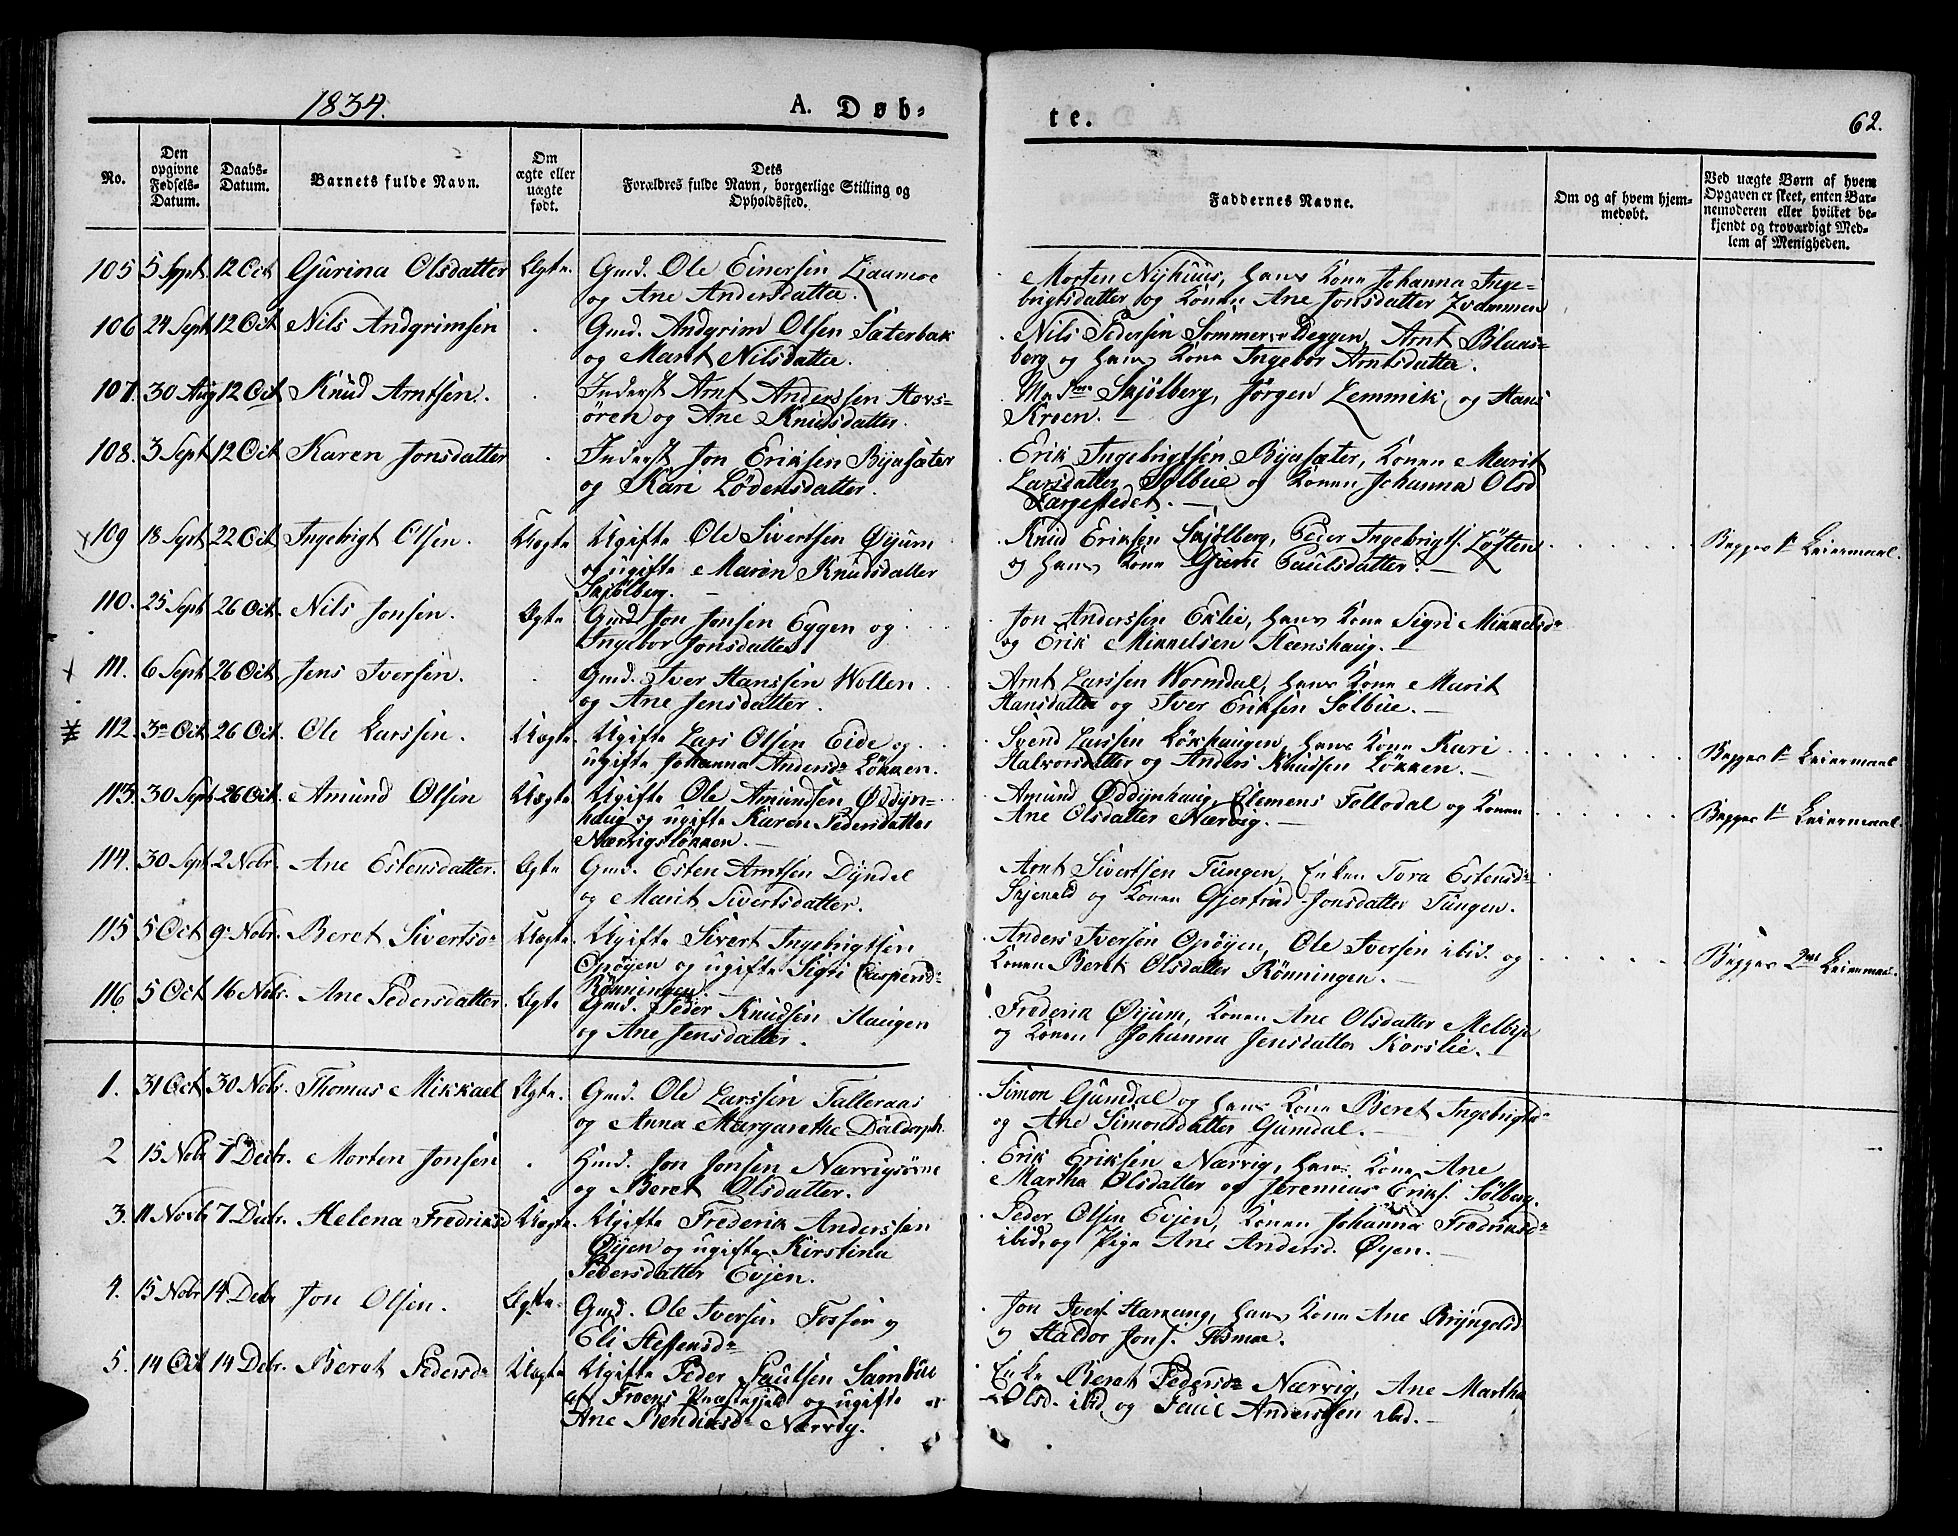 1834.
A. Døb-
te.
62.
No.
Den
opgivne
Fødsels-
Datum.
Daabs-
Datum.
Barnets fulde Navn.
Om
ægte eller
uægte
født.
Dets
Forældres fulde Navn, borgerlige Stilling og
Opholdssted.
Faddernes Navne.
Om og af hvem hjem-
medøbt.
Ved uægte Børn af hvem
Opgaven er skeet, enten Bar-
nemoderen eller hvilket be-
kjendt og troværdigt Med-
lem af Menigheden.
105 5 Sept 12 Oct Gurina Olsdatter Ægte. Gmd. Ole Einersen
og Ane Andersdatter.
Morten Nyhuus, hans Kone Johanna Inge-
brigtsdatter og Konen Ane Jonsdatter
106 24 Sept 12 Oct Nils Andgrimsen . Gmd. Andgrim Olsen Sæterbak
og Marit Nilsdatter.
Nils Pedersen Arnt
berg og hans Kone Ingebor Arntsdatter.
107. 30 Aug 12 Oct Knud Arntsen. . Inderst Arnt Anderssen Hovs-
ören og Ane Knudsdatter.
Skjølberg, Jørgen Lemmik og Hans
Kroen. —
108. 3 Sept 12 Oct Karen Jonsdatter . Inderst Jon Eriksen Byasæter
og Kari Lödensdatter.
Erik Ingebrigtsen Byasæter, Konen Marit
Larsdatter Solbue og Konen Johanna Olsd
Fargestedet. —
109 18 Sept 22 Oct Ingebrigt Olsen. Uægte Ugifte Ole Sivertsen Øyum
og ugifte Maren Knudsdatter
Skjølberg. —
Knud Eriksen Skjølberg, Peder Ingebrigts. Løften
og hans Kone Guru Paulsdatter. —
Begges 1ste Leiermaal.
110. 25 Sept 26 Oct Nils Jonsen. Ægte Gmd Jon Jonsen Eggen og
Ingebor Jonsdatter.
Jon Anderssen Eklie, hans Kone Sigri Mikkelsd=
og Erik Mikkelsen Steenshaug. —
111. 6 Sept 26 Oct Jens Iversen. . Gmd. Iver Hanssen Wollen
og Ane Jensdatter.
Arnt Larssen Wormdal, hans Kone Marit
Hansdatter og Iver Eriksen Solbue. —
112. 3 Oct. 26 Oct. Ole Larssen. Uægte. Ugifte Lars Olsen Eide og
ugifte Johanna Andersd= Løkken.
Svend Larssen Løkhaugen, hans Kone Kari
Halvorsdatter og Anders Knudsen Løkken. —
Begges 1ste Leiermaal
113. 30 Sept 26 Oct. Amund Olsen Uægte Ugifte Ole Amundsen Øddyn-
haug og ugifte Karen Pedersdatter
Nærvigsløkken. —
Amund Øddynhaug, Clemens Follodal og Konen
Ane Olsdatter Nærvig. —
Begges 1ste Leiermaal.
114. 30 Sept 2 Nobr. Ane Estensdatter. Ægte Gmd. Esten Arntsen Dyndal
og Marit Sivertsdatter.
Arnt Sivertsen Tungen, Enken Tora Estensd=
Skjenald og Konen Gjertrud Jonsdatter Tungen.
115 5 Oct 9 Nobr. Beret Sivertsd= Uægte. Ugifte Sivert Ingebrigtsen
Opøyen og ugifte Sigri Caspersd=
Rönningen. —
Anders Iversen Opøyen, Ole Iversen ibid. og
Konen Beret Olsdatter Rönningen. —
Begges 2det Leiermaal.
116 5 Oct 16 Nobr. Ane Pedersdatter. Ægte Gmd. Peder Knudsen Haugen
og Ane Jensdatter.
Frederik Øyum, Konen Ane Olsdatter Melbye
og Konen Johanna Jensdatter Korslie. —
1. 31 Oct 30 Nobr. Thomas Mikkael Ægte. Gmd. Ole Larssen Talleraas
og Anna Margarethe Daldorph.
Simon Gumdal og hans Kone Beret Ingebrigtsd=
og Ane Simonsdatter Gumdal. —
2 15 Nobr 7 Decbr. Morten Jonsen . Hmd. Jon Jonsen Nærvigsörne
og Beret Olsdatter.
Erik Eriksen Nærvig, hans Kone Ane
Martha Olsdatter og Jeremias Eriks. Sølberg.
3. 11 Novbr 7 Decbr. Helena Fredriksd Uægte. Ugifte Frederik Anderssen
Øyen og ugifte Kirstina
Pedersdatter Evjen.
Peder Olsen Evjen, Konen Johanna Fredriksd=
ibid. og Pige Ane Andersd. Øyen. —
4. 15 Nobr 14 Debr Jon Olsen. Ægte. Gmd. Ole Iversen Fossen og
Eli Steffensd=
Jon Ivers. Hameng, hans Kone Ane Bryngelsd.
og Haldor Jons. Fosmoe.
5. 14 Oct 14 Debr. Beret Pedersd= Uægte Ugifte Peder Paulsen Sambue
af Froens Præstegjeld og ugifte
Ane Bendiksd= Nærvig.
Enke Beret Pedersd= Nærvig, Ane Martha
Olsd. ibid og Paul Anderssen ibid. —